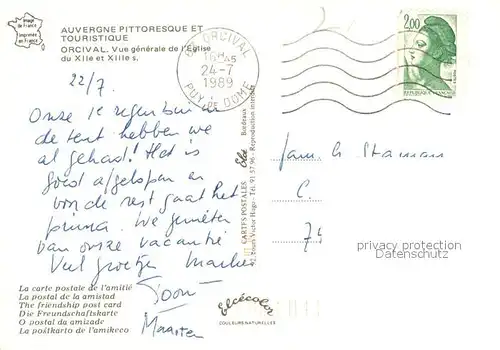 Image
de France
Imprimée
en France
AUVERGNE PITTORESQUE ET
TOURISTIQUE
ORCIVAL. Vue générale de l'Eglise
du XIIe et XIIIe s.
ORCIVAL
24-7
1989
PUY DE DOME
2,00
REPUBLIQUE FRANCAISE
22/7.
Onze 1e regenbui in
de tent hebben we
al gehad! Het is
goed afgelopen en
voor de rest gaat het
prima. We genieten
van onze vacantie
Veel groetjes
Toon
Maarten
Fam. G
C.
74
CARTES POSTALES
Bordeaux
92, cours Victor Hugo - Tél. 91 57 96 - Reproduction interdite
privacy protection
Datenschutz
La carte postale de l'amitié
La postal de la amistad
The friendship post card
Die Freundschaftskarte
O postal da amizade
La postkarto de l'amikeco
elcécolor
COULEURS NATURELLES